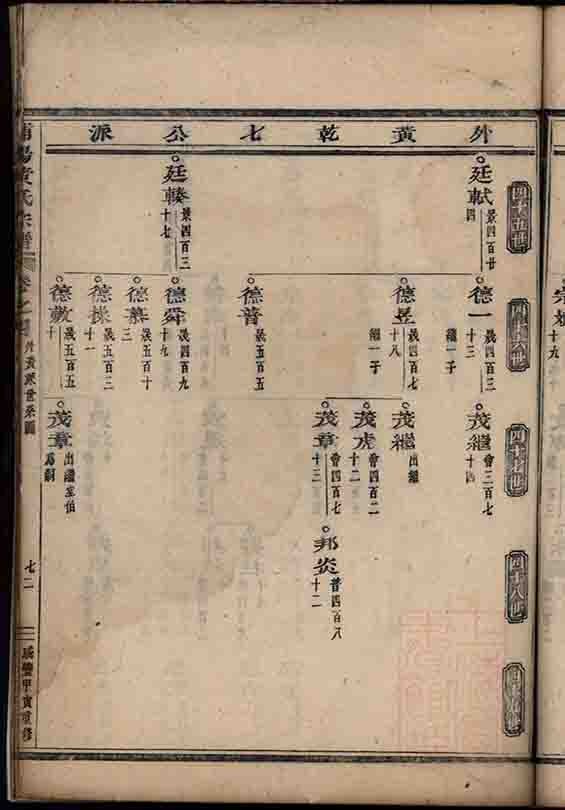 外黃乾七公派
四十五世
四十六世
四十七世
四十八世
廷軾 景四百廿四
廷輳 景四百三十七
德一 晟四百三十三
繼一子
德昱 晟四百七十八
繼一子
德普 晟五百五
德舜 晟四百九十九
德恭 晟五百十三
德操 晟五百三十一
德敷 晟五百五十
茂繼 會三百七十四
茂繼 出繼
茂虎 會四百二十二
茂章 會四百七十三
茂章 出繼堂伯爲嗣
邦炎 普四百八十二
黃氏宗譜
外黃派世系圖
七二
咸豐甲寅重修